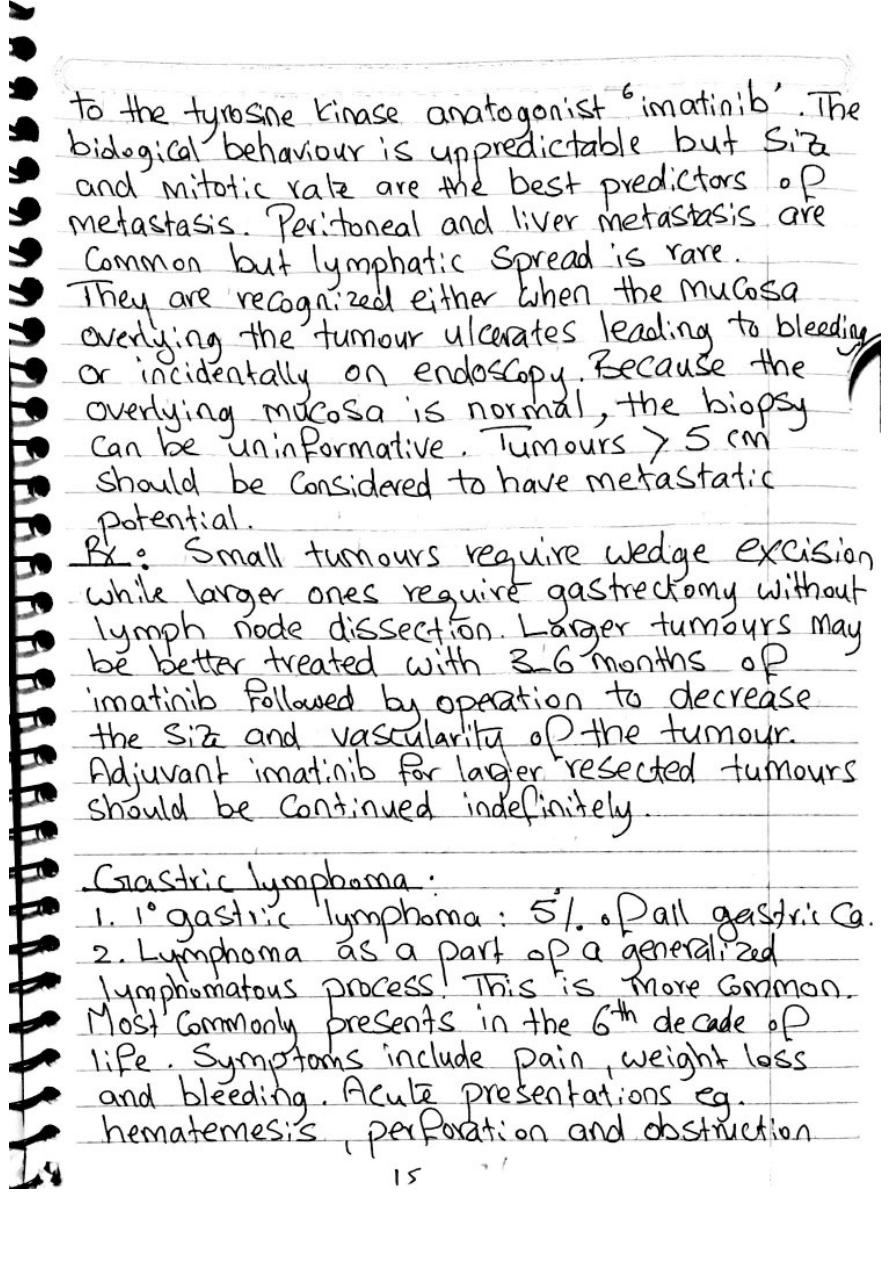 to the tyrosine kinase anatogonist ‘imatinib’. The
biological behaviour is uppredictable but Size
and mitotic rate are the best predictors of
metastasis. Peritoneal and liver metastasis are
Common but lymphatic Spread is rare.
They are recognized either when the mucosa
overlying the tumour ulcerates leading to bleeding
or incidentally on endoscopy. Because the
overlying mucosa is normal, the biopsy
Can be uninformative. Tumours > 5 cm
should be Considered to have metastatic
potential.
Rx: Small tumours require wedge excision
while larger ones require gastrectomy without
lymph node dissection. Larger tumours may
be better treated with 3-6 months of
imatinib followed by operation to decrease
the Size and vascularity of the tumour.
Adjuvant imatinib for larger resected tumours
should be Continued indefinitely.
Gastric lymphoma:
1. 1° gastric lymphoma: 5% of all gastric Ca.
2. Lymphoma as a part of a generalized
lymphomatous process. This is more Common.
Most Commonly presents in the 6th decade of
life. Symptoms include pain, weight loss
and bleeding. Acute presentations eg.
hematemesis, perforation and obstruction
15